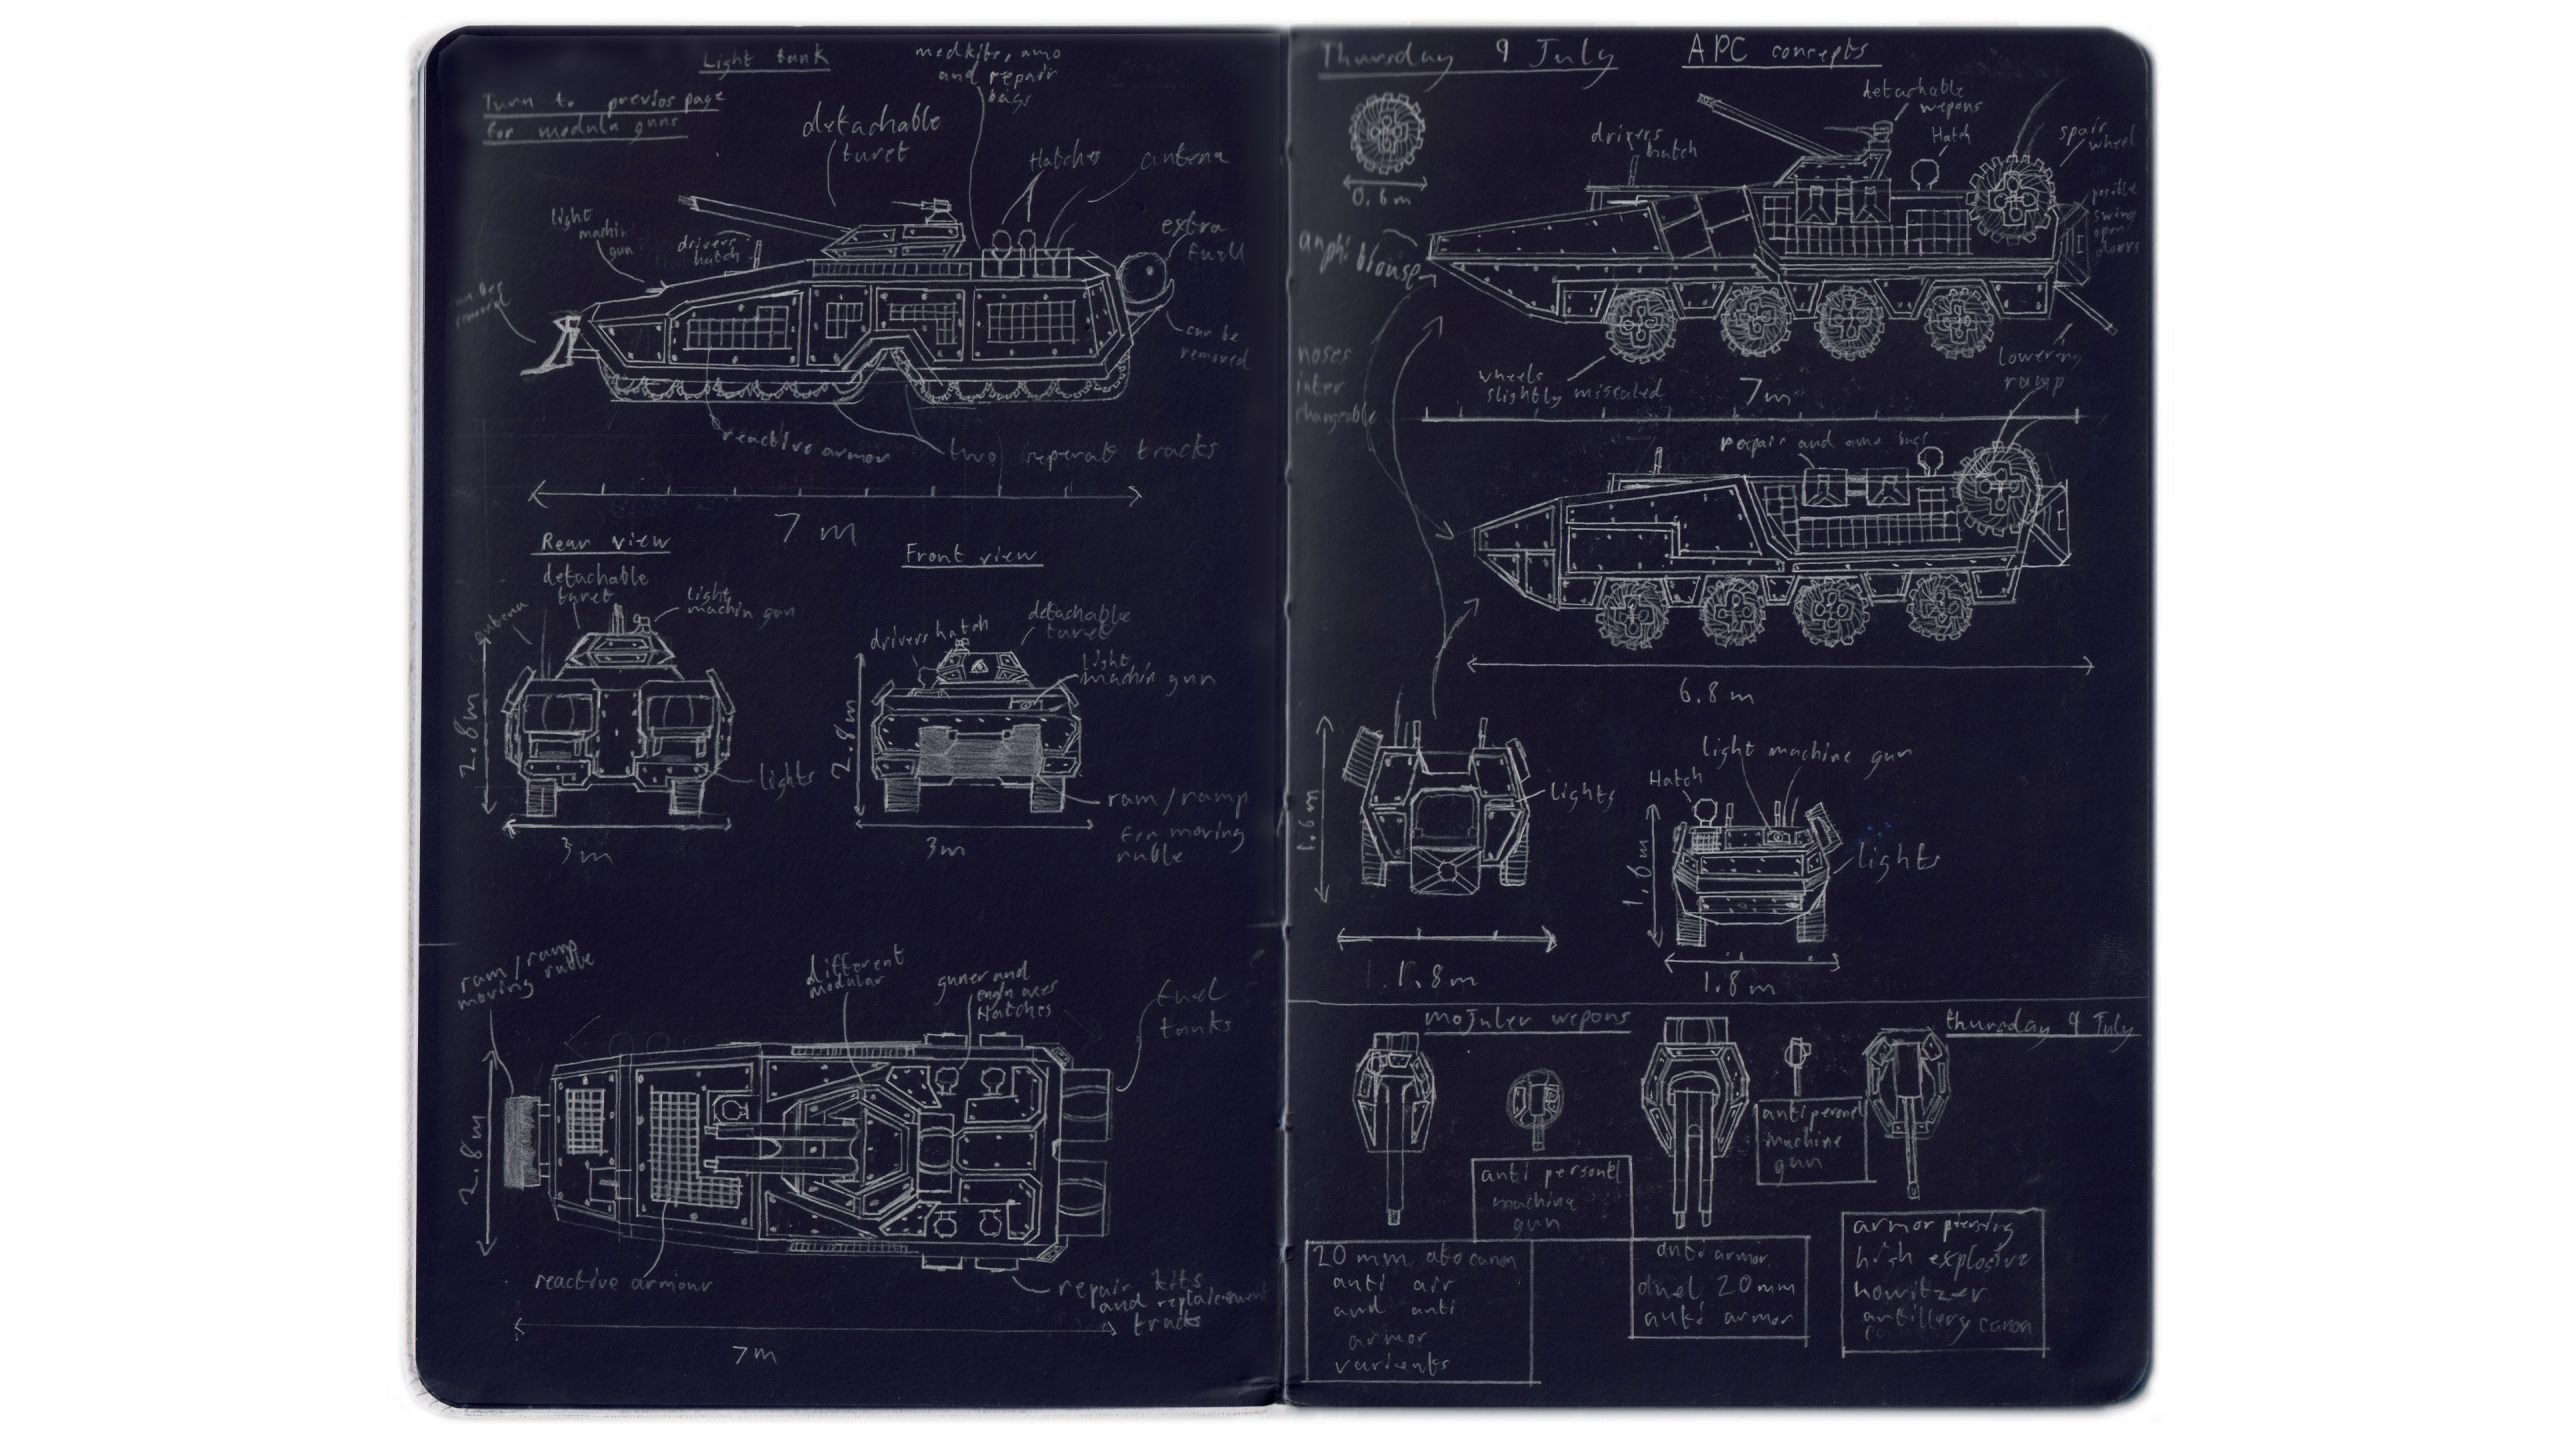 Light tank
medkits, amo
and repair
bags
Turn to previos page
for modula guns
detachable
turet
Hatches
antena
light
machin
gun
drivers
hatch
extra
fuell
can be
removed
can be
removed
reactive armor
two seperat tracks
7 m
Rear view
detachable
turet
light
machin gun
antena
2.8m
lights
3m
Front view
drivers hatch
detachable
turet
light
machin gun
2.8m
ram/ramp
for moving
ruble
3m
ram/ramp
moving ruble
different
modular
guner and
Hatches
fuel
tanks
2.8m
reactive armour
repair kits
and replaicement
tracks
7m
Thursday 9 July
APC concepts
0.6m
drivers
hatch
detachable
wepons
Hatch
spair
wheel
posible
swing
open
doers
noses
inter
changeable
wheels
slightly
lowering
ramp
7m
repair and amo bags
6.8m
1.6m
lights
1.8m
light machine gun
Hatch
1.6m
lights
1.8m
mojuler wepons
thursday 9 July
20mm atocanon
anti air
and anti
armor
varients
anti personel
machine
gun
anti armor
duel 20mm
anti armor
anti personel
machine
gun
armor piersing
high explosive
howitzer
artillery canon